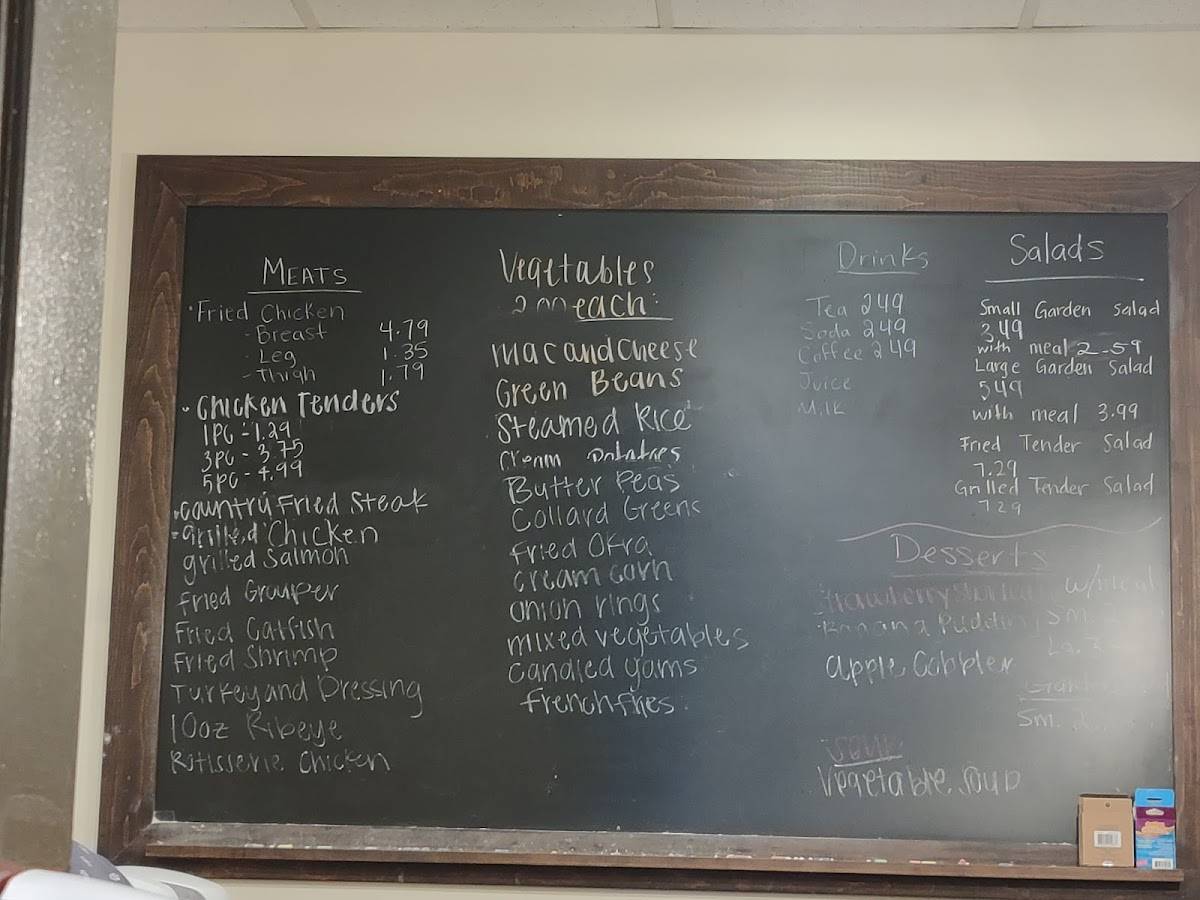 MEATS
Fried Chicken
- Breast 4.79
- Leg 1.35
- Thigh 1.79
Chicken Tenders
1pc - 1.29
3pc - 3.75
5pc - 4.99
Country Fried Steak
grilled Chicken
grilled Salmon
Fried Grouper
Fried Catfish
Fried Shrimp
Turkey and Dressing
10oz Ribeye
Rotisserie Chicken
Vegetables
2.00 each:
mac and Cheese
Green Beans
Steamed Rice
Cream Potatoes
Butter Peas
Collard Greens
Fried Okra
cream corn
onion rings
mixed vegetables
candied yams
french fries
Drinks
Tea 249
Soda 249
Coffee 249
Juice
Milk
Salads
Small Garden Salad
3.49
with meal 2.59
Large Garden Salad
549
with meal 3.99
Fried Tender Salad
7.29
Grilled Tender Salad
729
Desserts
w/meal
Banana Pudding Sm.
Lg.
apple Cobbler
Sm. 2
SOUP
Vegetable Soup